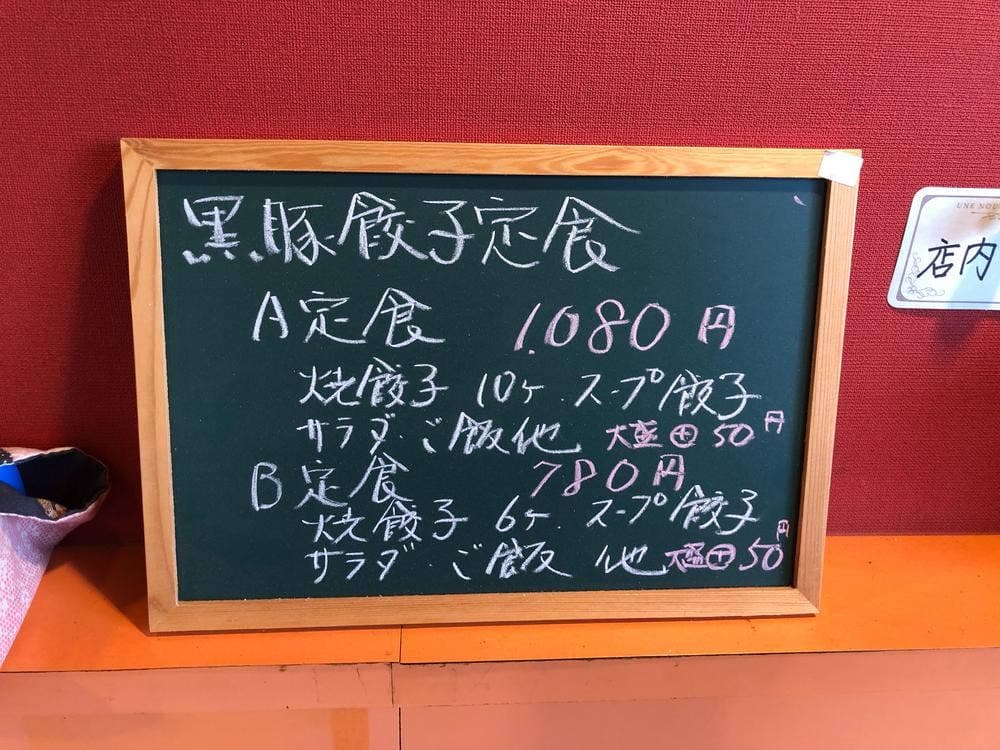 黒豚餃子定食
A定食 1.080円
焼餃子 10ケ.スープ餃子
サラダ.ご飯他 大盛⊕50円
B定食 780円
焼餃子 6ケ.スープ餃子
サラダ.ご飯 他 大盛⊕50円
UNE NOU
店内